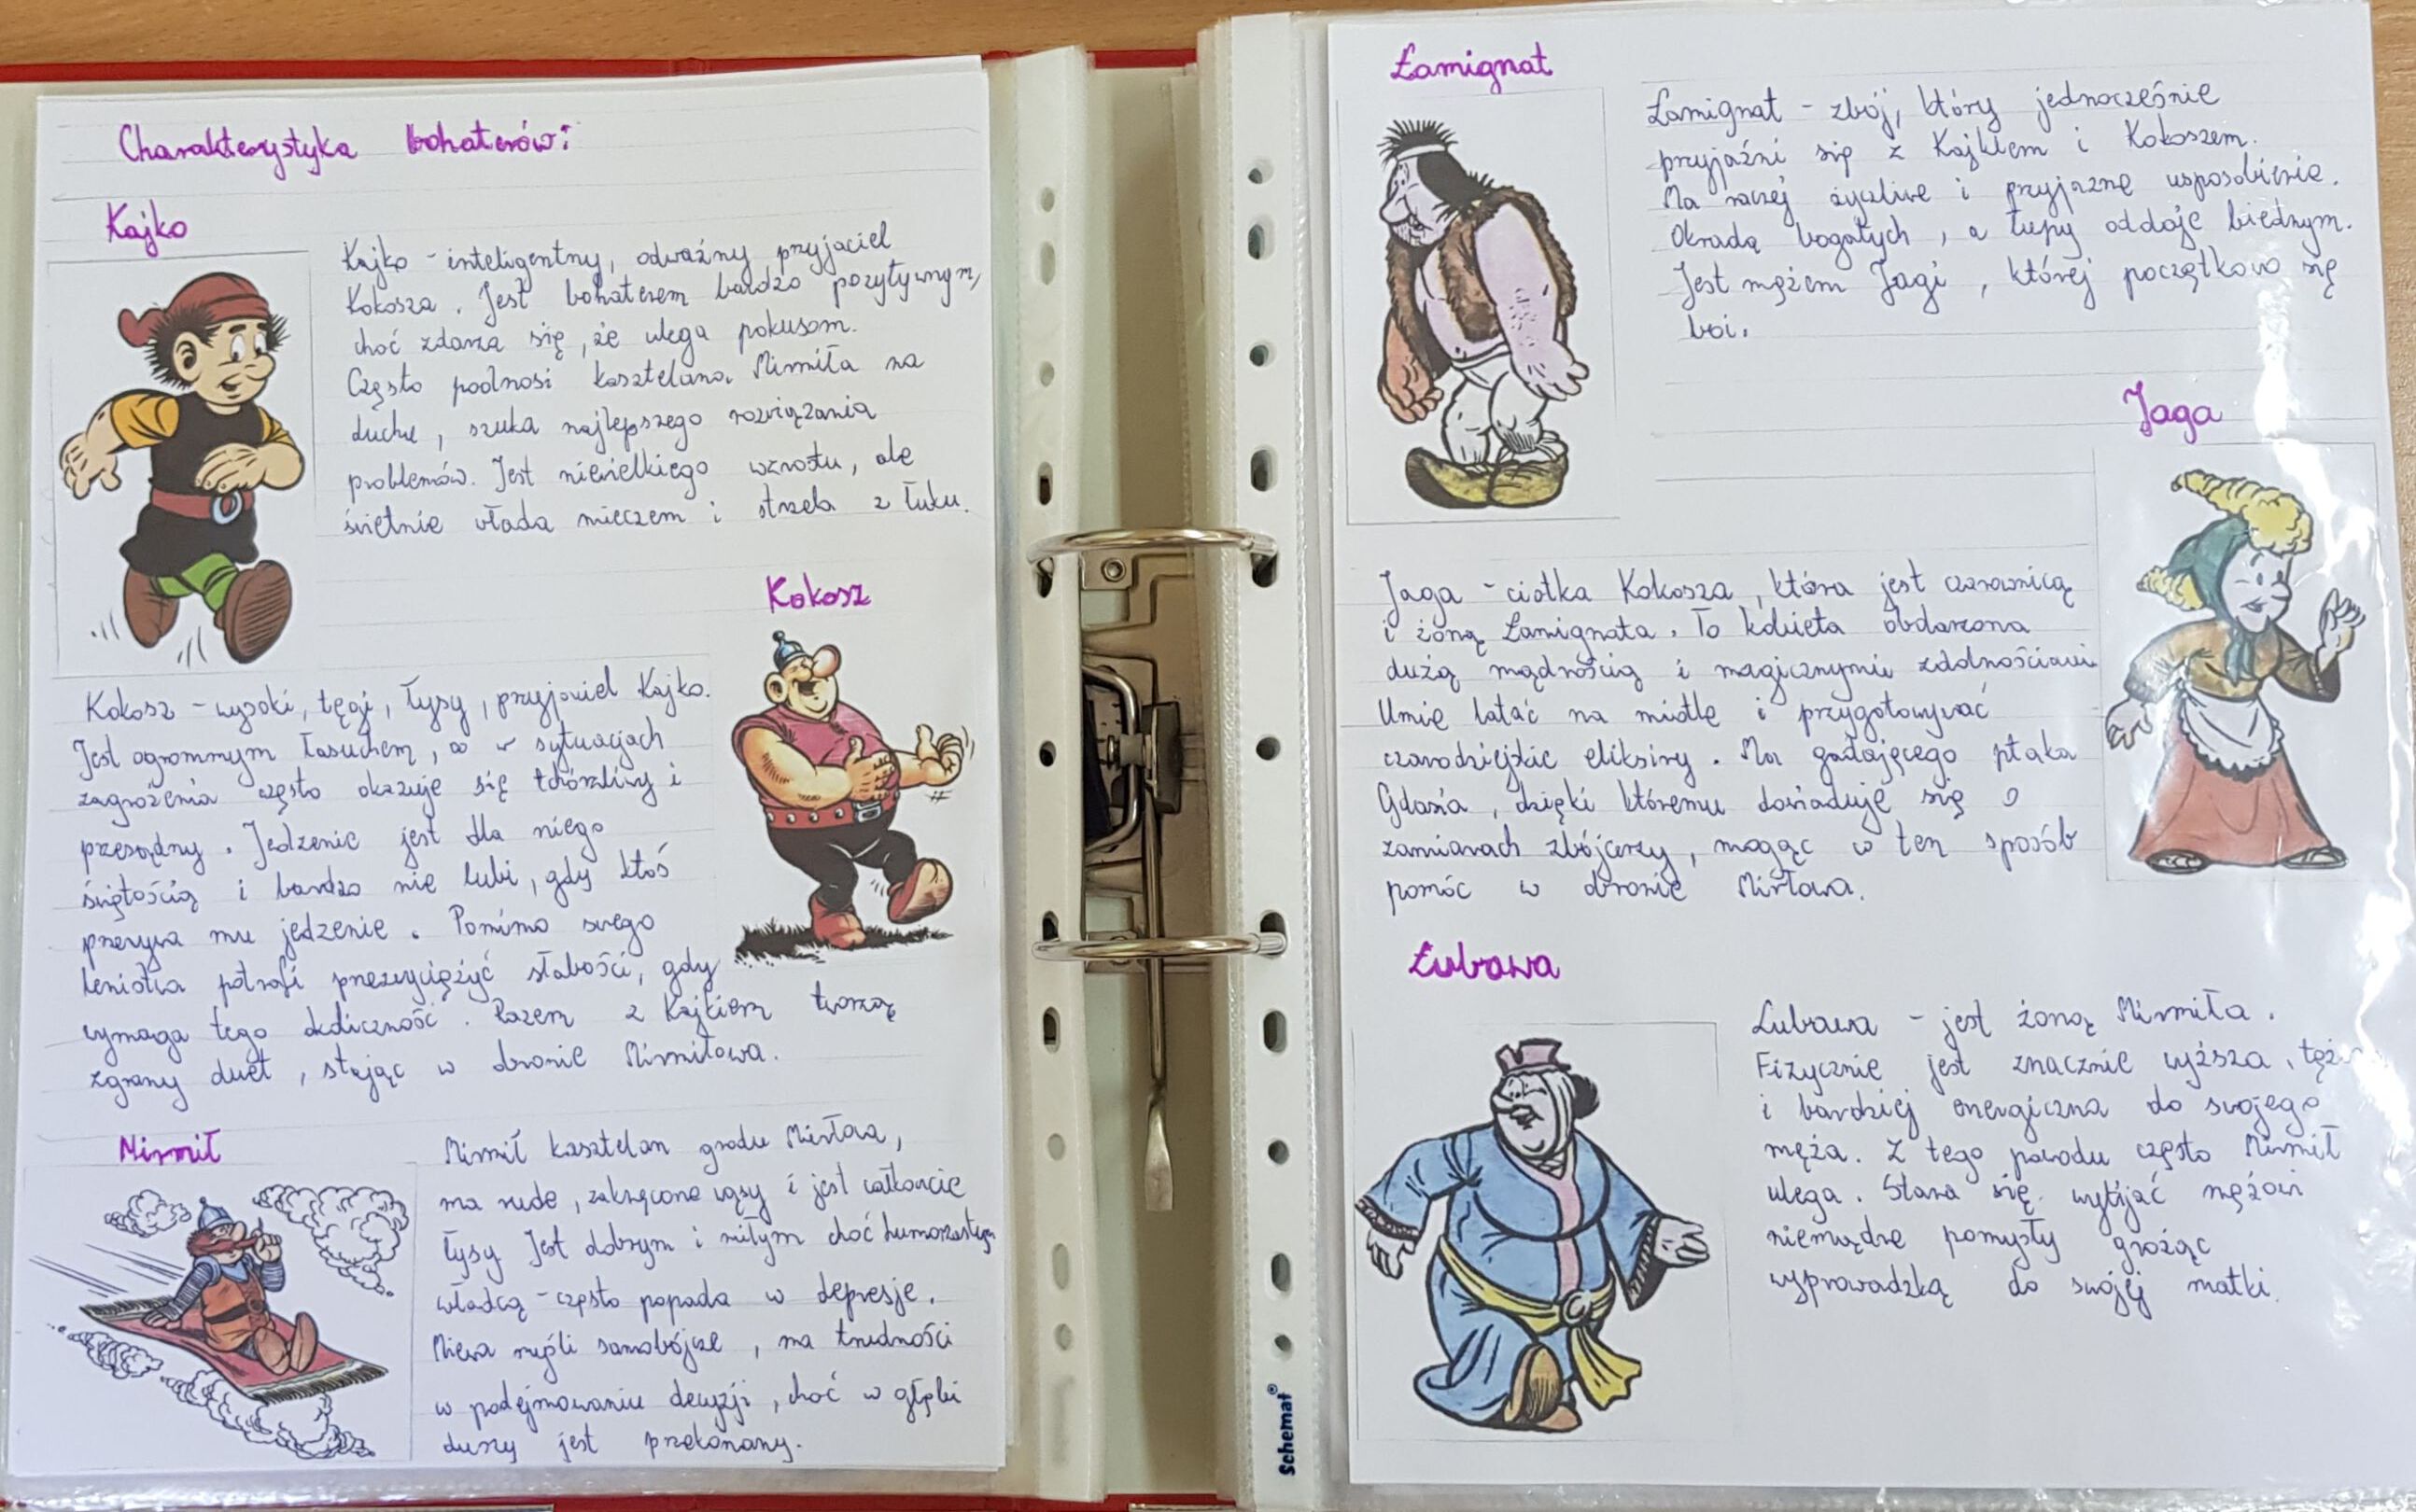 Charakterystyka bohaterów:
Kajko
Kajko - inteligentny, odważny przyjaciel
Kokosza. Jest bohaterem bardzo pozytywnym,
choć zdarza się, że ulega pokusom.
Często podnosi kasztelana Mirmiła na
duchu, szuka najlepszego rozwiązania
problemów. Jest niewielkiego wzrostu, ale
świetnie włada mieczem i strzela z łuku.
Kokosz
Kokosz - wysoki, tęgi, łysy, przyjaciel Kajko.
Jest ogromnym łasuchem, a w sytuacjach
zagrożenia często okazuje się tchórzliwy i
przesądny. Jedzenie jest dla niego
świętością i bardzo nie lubi, gdy ktoś
przerywa mu jedzenie. Pomimo swego
lenistwa potrafi przezwyciężyć słabości, gdy
wymaga tego okoliczność. Razem z Kajkiem tworzą
zgrany duet, stając w obronie Mirmiłowa.
Mirmił
Mirmił kasztelan grodu Mirłowa,
ma rude, zakręcone wąsy i jest całkowicie
łysy Jest dobrym i miłym choć humorzastym
władcą - często popada w depresje.
Miewa myśli samobójcze, ma trudności
w podejmowaniu decyzji, choć w głębi
duszy jest przekonany.
Łamignat
Łamignat - zbój, który jednocześnie
przyjaźni się z Kajkiem i Kokoszem.
Ma raczej życzliwe i przyjazne usposobienie.
Okrada bogatych, a łupy oddaje biednym.
Jest mężem Jagi, której początkowo się
boi.
Jaga
Jaga - ciotka Kokosza, która jest czarownicą
i żoną Łamignata. To kobieta obdarzona
dużą mądrością i magicznymi zdolnościami
Umie latać na miotle i przygotowywać
czarodziejskie eliksiry. Ma gadającego ptaka
Gdasia, dzięki któremu dowiaduje się o
zamiarach zbójcerzy, mogąc w ten sposób
pomóc w obronie Mirłowa.
Lubawa
Lubawa - jest żoną Mirmiła.
Fizycznie jest znacznie wyższa,
i bardziej energiczna do swojego
męża. Z tego powodu często Mirmił
ulega. Stara się wybijać mężowi
niemądre pomysły grożąc
wyprowadzką do swojej matki.
Schemat®